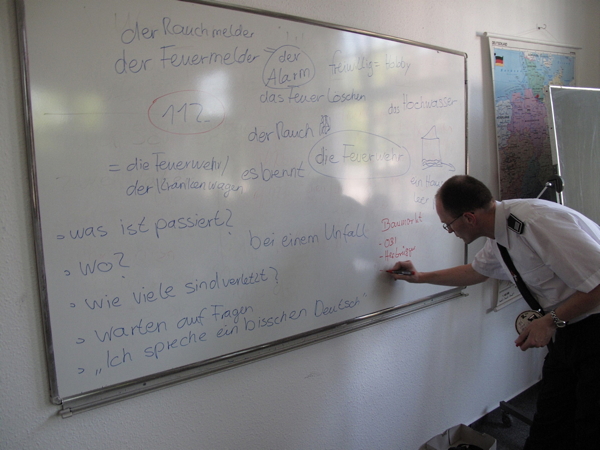 der Rauchmelder
der Feuermelder = der Alarm
freiwillig = hobby
das Feuer löschen
das Hochwasser
112
der Rauch
= die Feuerwehr/
der Krankenwagen
es brennt
die Feuerwehr
ein Haus
leer
was ist passiert?
bei einem Unfall
Baumarkt
OBI
wo?
wie viele sind verletzt?
warten auf Fragen
"Ich spreche ein bisschen Deutsch"